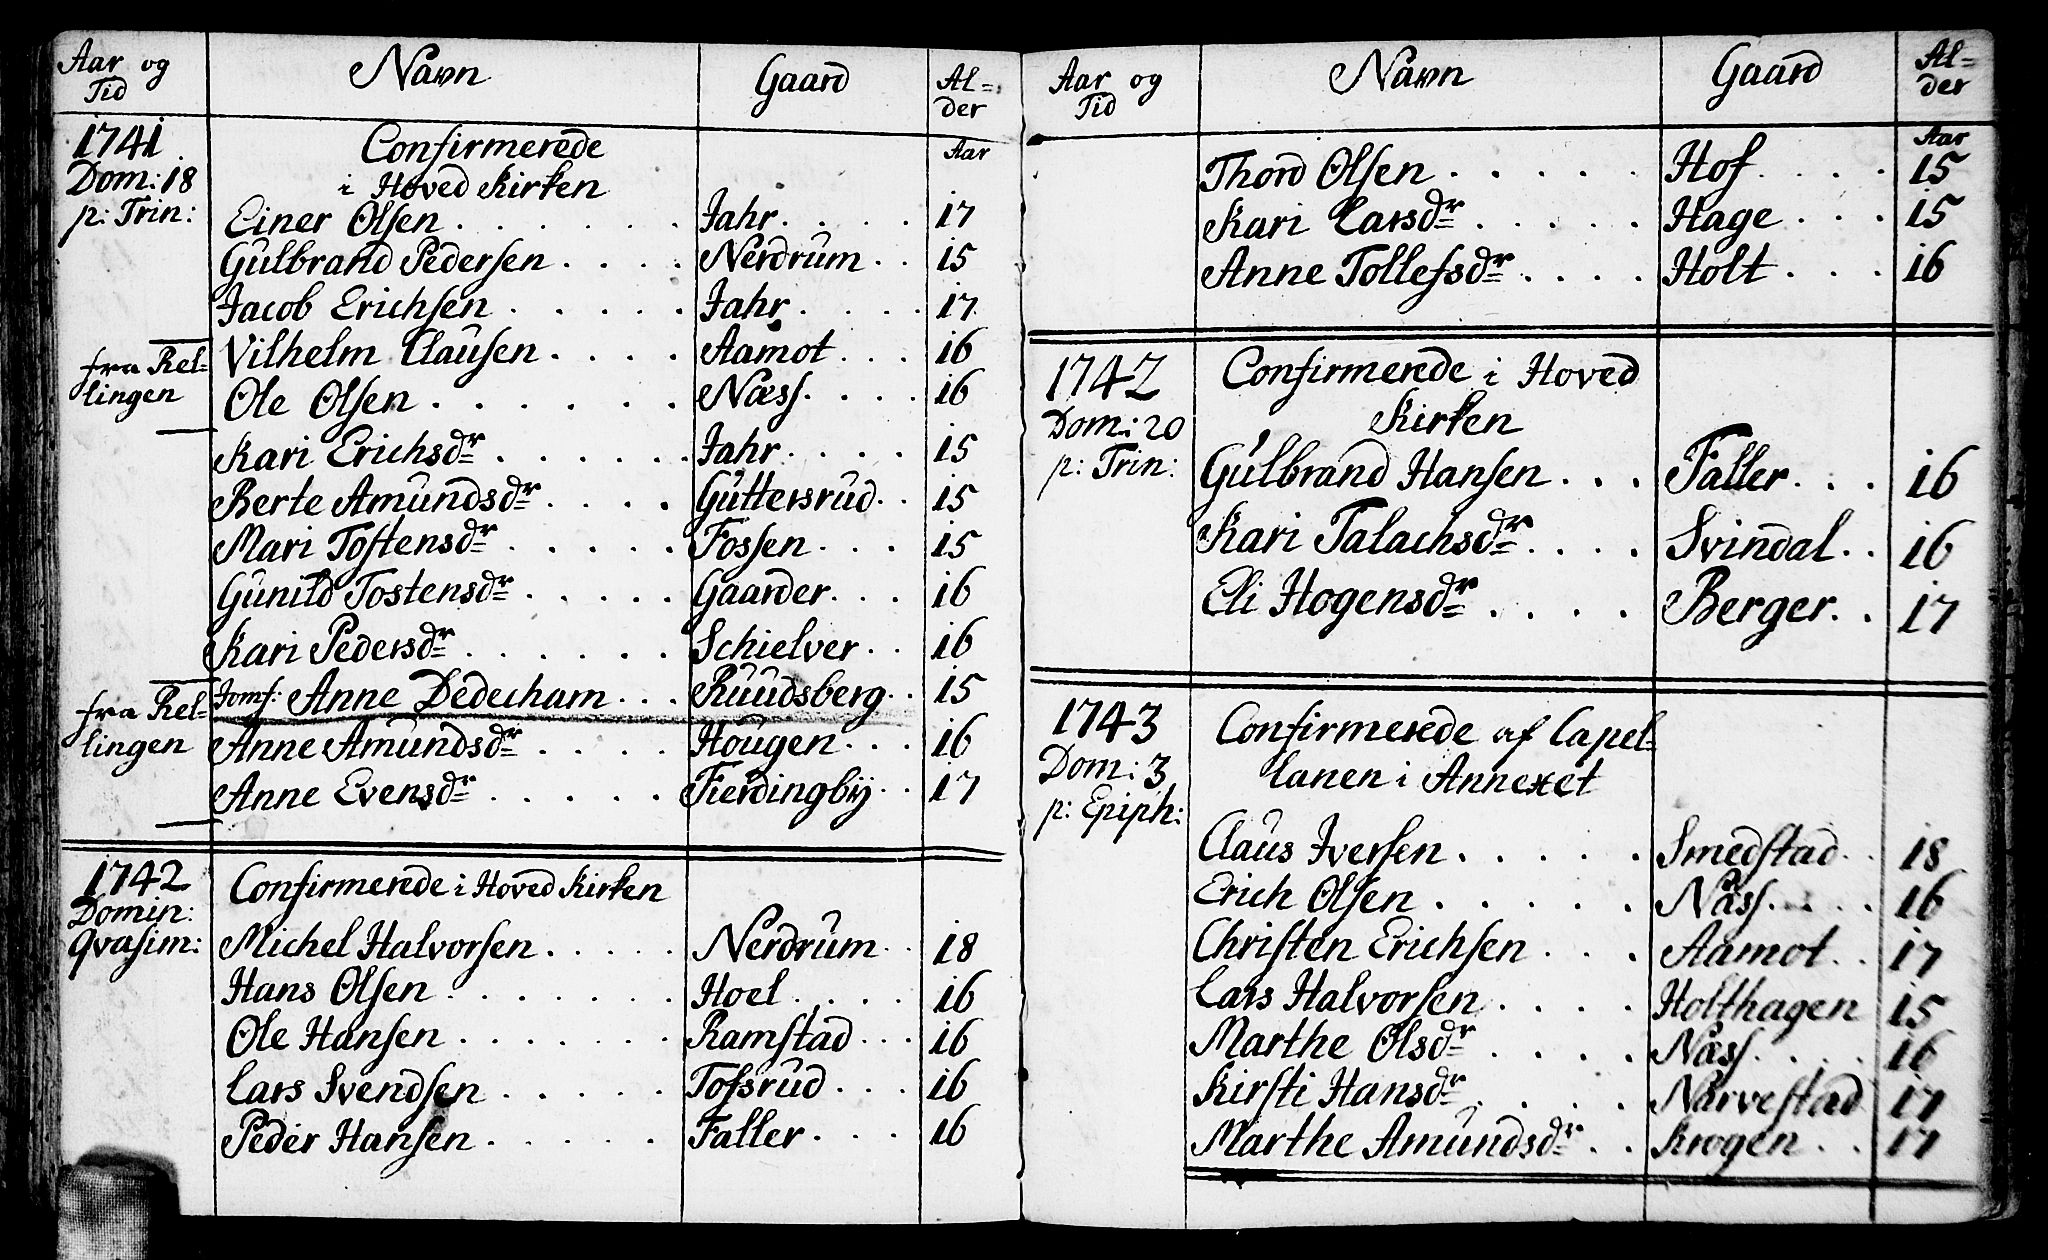 Aar og Tid Navn Gaard Al=der
1741 Confirmerede Aar
Dom: 18 i Hoved Kirken
p: Trin: Einer Olsen . . . . . . . Jahr . . . . 17
Gulbrand Pedersen . . . . Nerdrum . . 15
Jacob Erichsen . . . . . Jahr . . . . 17
fra Rel= Vilhelm Clausen . . . . Aamot . . . 16
lingen Ole Olsen . . . . . . Næss . . . . 16
Kari Erichsdr . . . . . . Jahr . . . . 15
Berte Amundsdr . . . . Guttersrud . . 15
Mari Tostensdr . . . . . Fossen . . . 15
Gunild Tostensdr . . . . . Gaarder . . . 16
Kari Pedersdr . . . . . . Schielver . . 16
fra Rel= Jomf: Anne Dedecham . . . Ruudsberg . . 15
lingen Anne Amundsdr . . . . Hougen . . . 16
Anne Evensdr . . . . . Fierdingbÿ . . 17
1742 Confirmerede i Hoved Kirken
Domin:
Qvasim: Michel Halvorsen . . . . . Nerdrum . . 18
Hans Olsen . . . . . . . Hoel . . . . 16
Ole Hansen . . . . . . . Ramstad . . . 16
Lars Svendsen . . . . . . Tofsrud . . . 16
Peder Hansen . . . . . Faller . . . 16
Aar og Tid Navn Gaard Al=der
Aar
Thord Olsen . . . . . Hof . . . . 15
Kari Larsdr . . . . . Hage . . . 15
Anne Tollefsdr . . . . Holt . . . 16
1742 Confirmerede i Hoved
Dom: 20 Kirken
p: Trin: Gulbrand Hansen . . . Faller . . . 16
Kari Talachsdr . . . . Svindal . . 16
Eli Hogensdr . . . . Berger . . 17
1743 Confirmerede af Capel=
Dom: 3 lanen i Annexet
p: Epiph:
Claus Iversen . . . . . Smedstad . . 18
Erich Olsen . . . . . Næss . . . . 16
Christen Erichsen . . . Aamot . . 17
Lars Halvorsen . . . . Holthagen 15
Marthe Olsdr . . . . Næss . . . . 16
Kirsti Hansdr . . . . Narvestad 17
Marthe Amundsdr . . Krogen . . 17